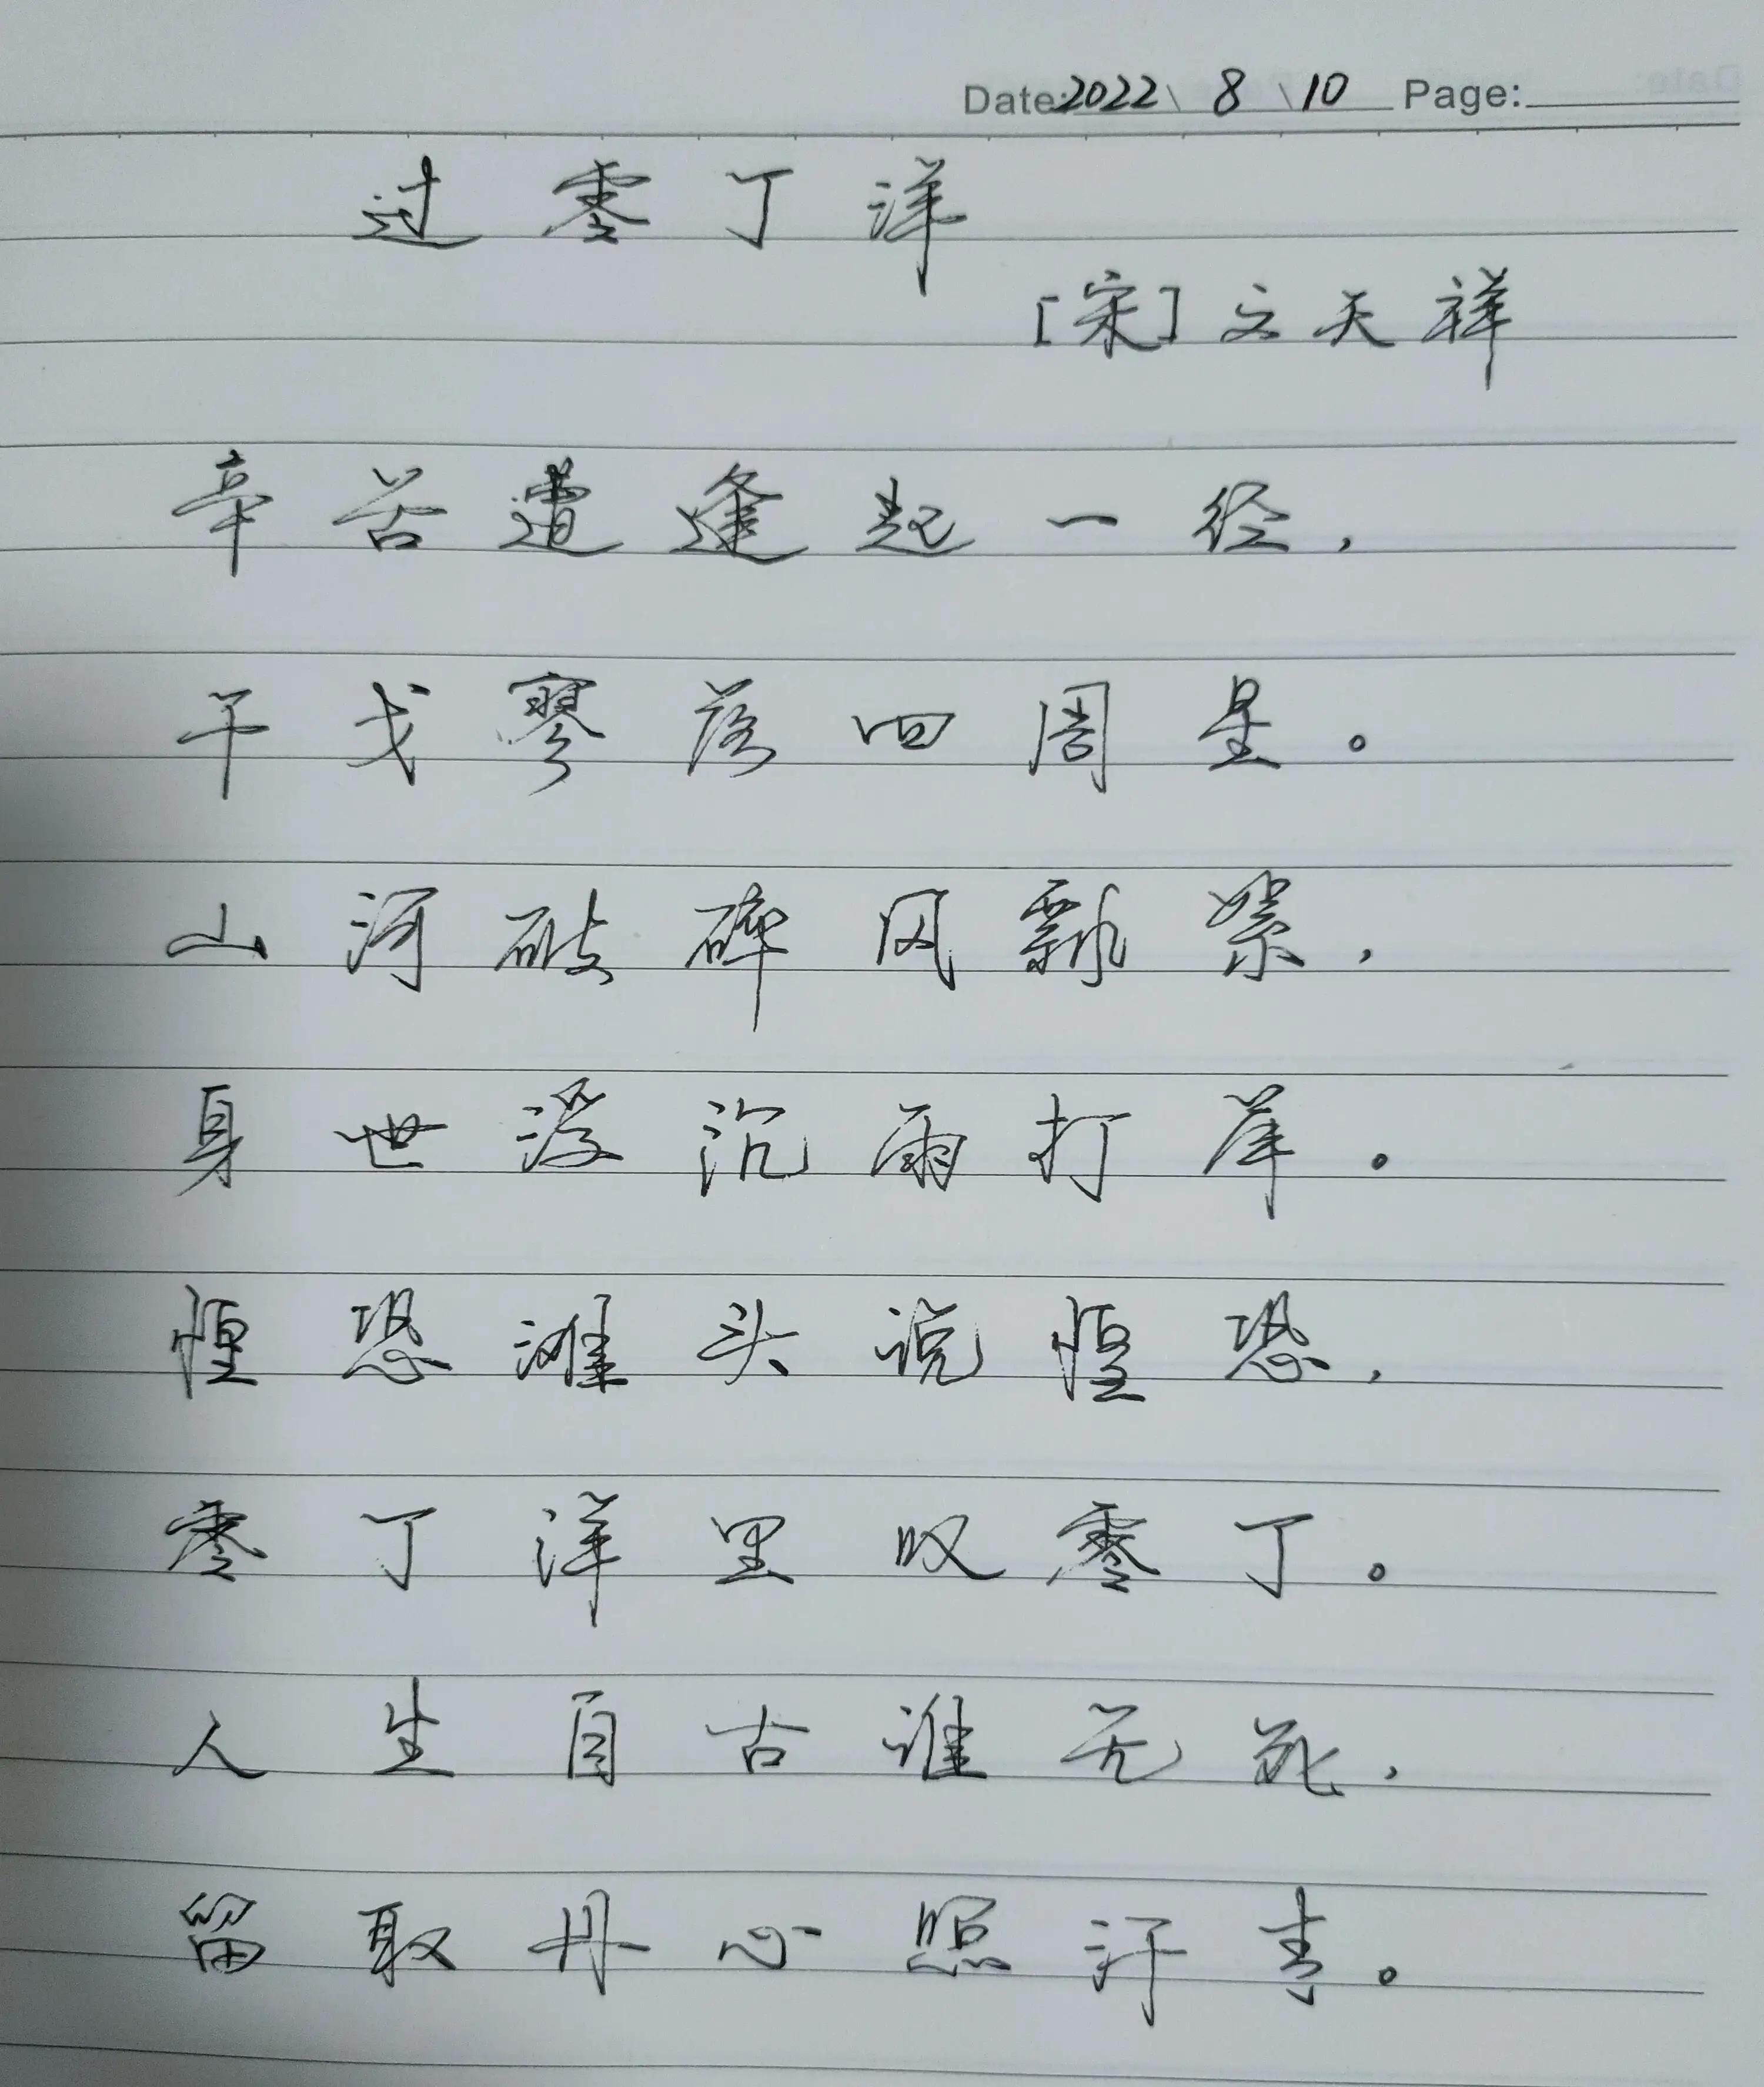 Date:2022\8\10 Page:
过零丁洋
[宋]文天祥
辛苦遭逢起一经,
干戈寥落四周星。
山河破碎风飘絮,
身世浮沉雨打岸。
惶恐滩头说惶恐,
零丁洋里叹零丁。
人生自古谁无死,
留取丹心照汗青。